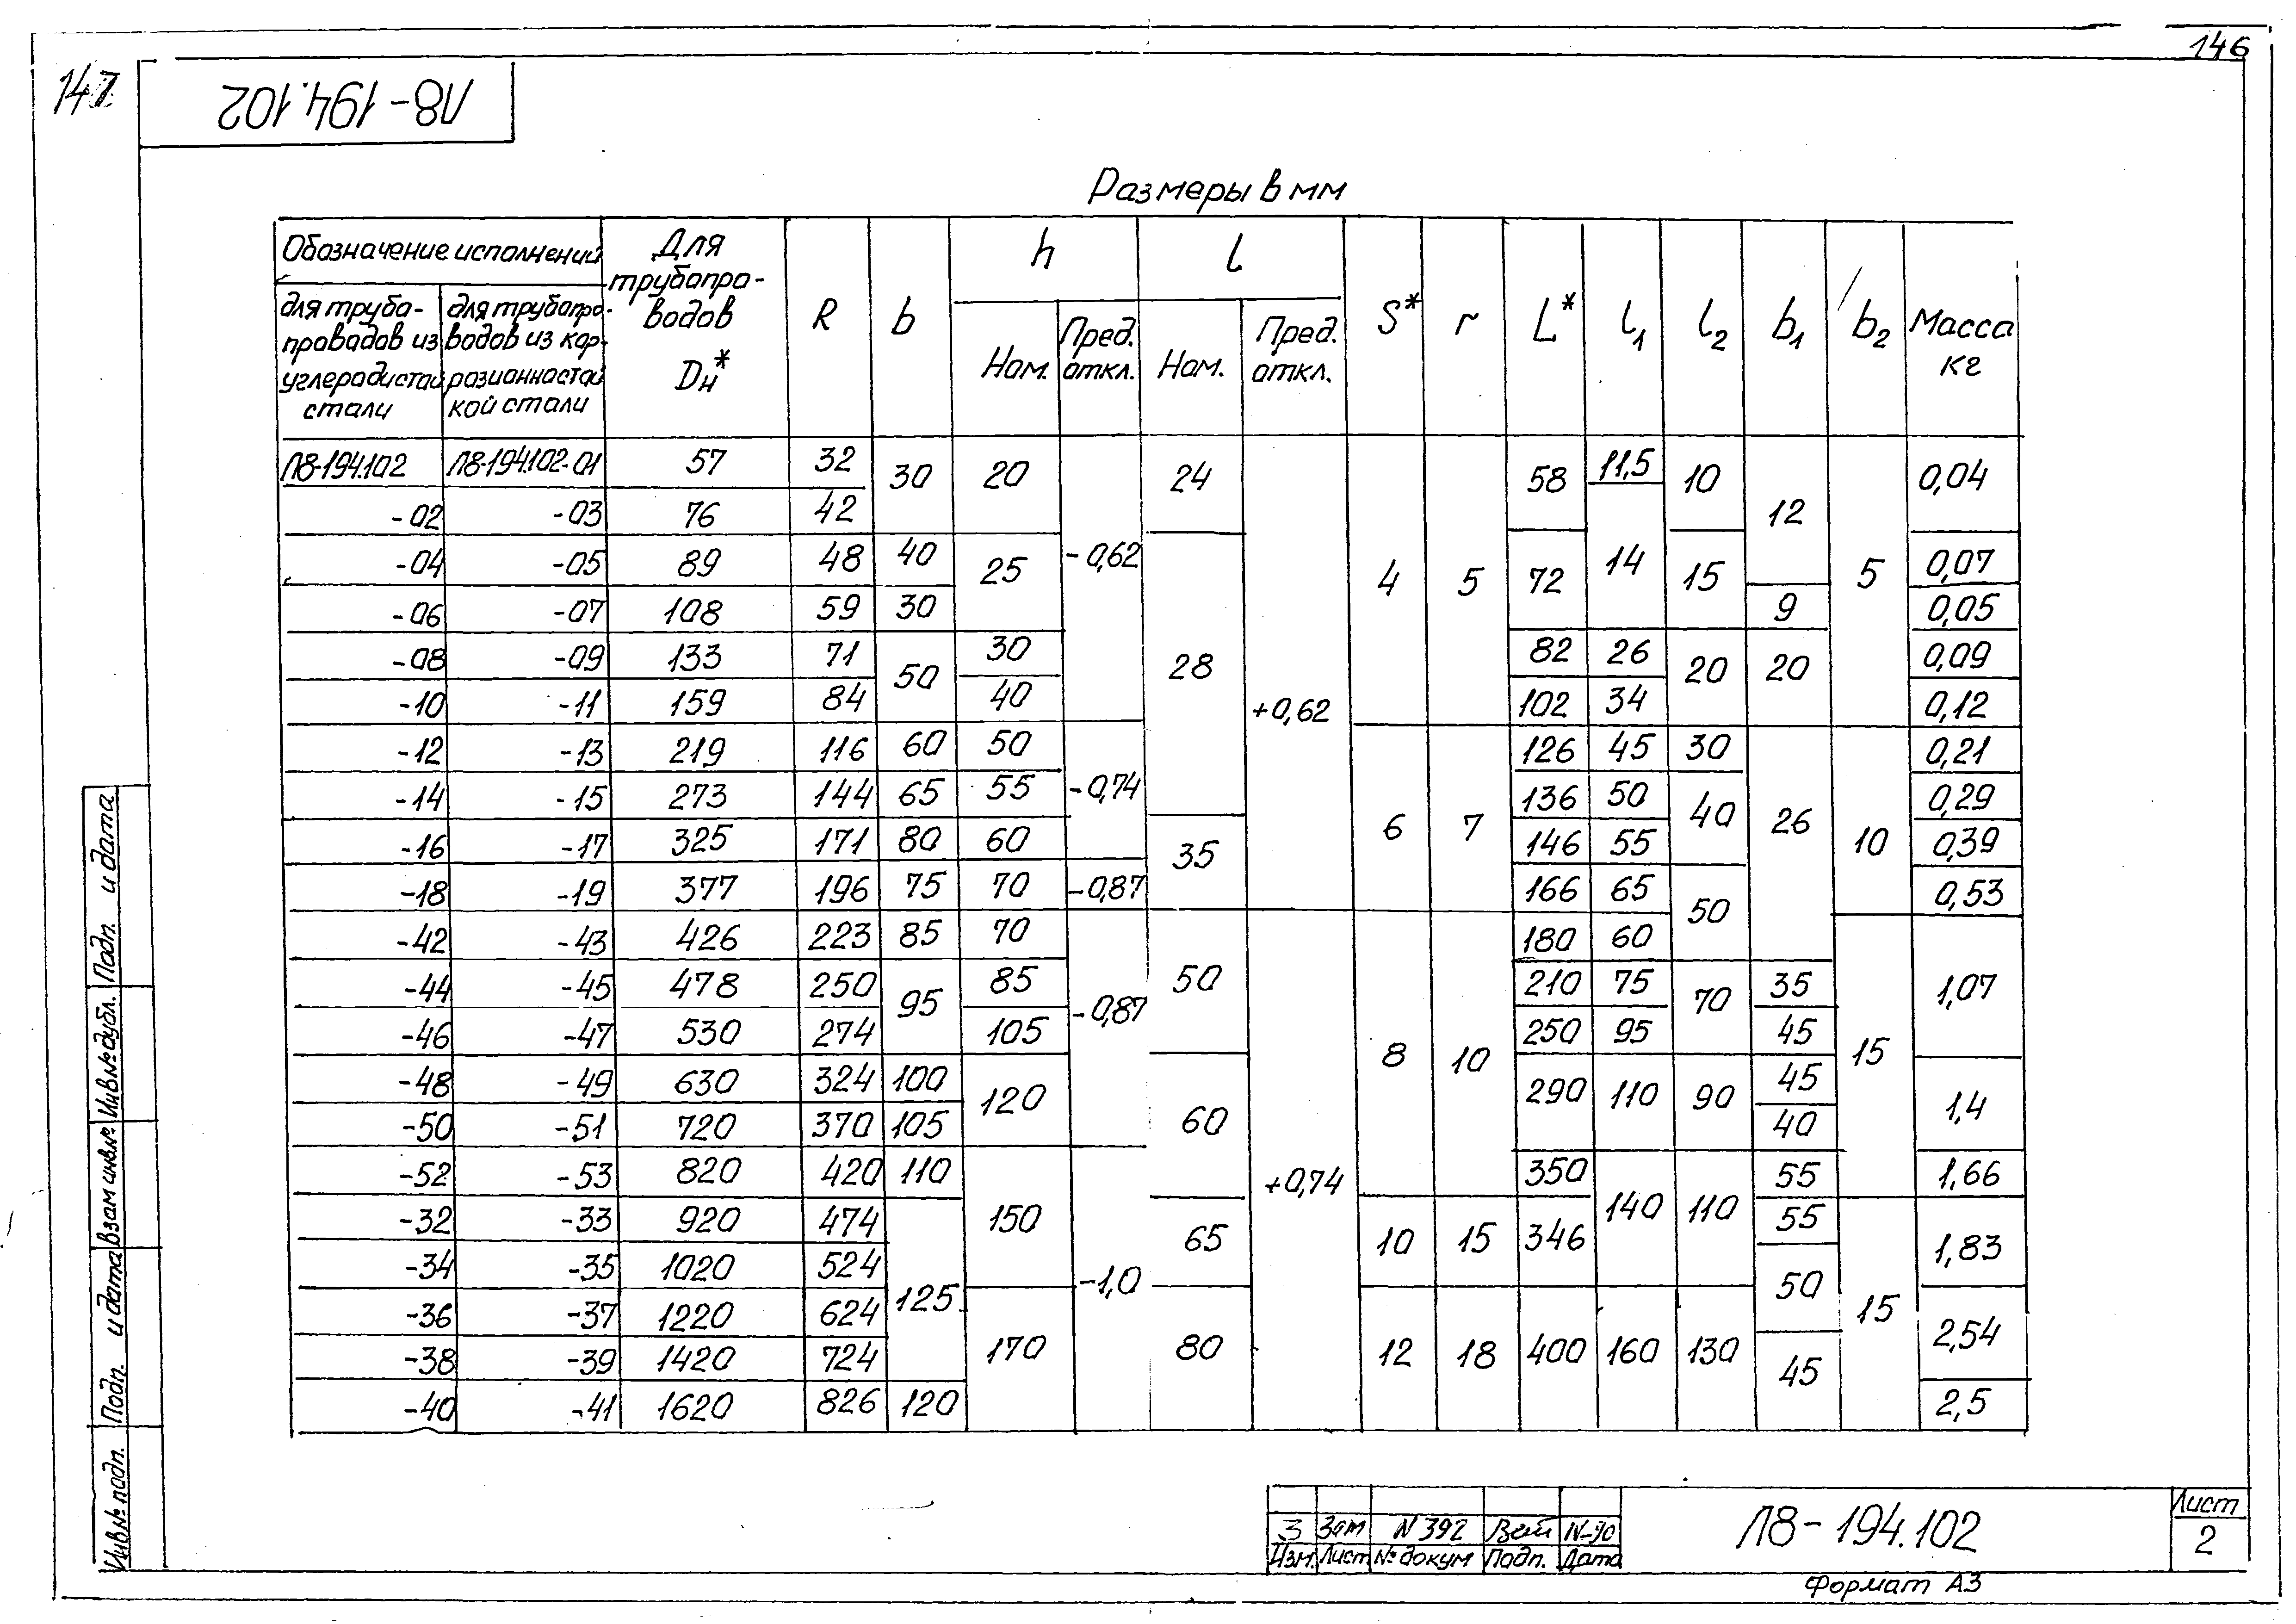 146
147
Л8-194.102
Размеры в мм
Обозначение исполнений
для трубо-
проводов из
углеродистой
стали
для трубопро-
водов из кор-
розионностой
кой стали
Для
трубопро-
водов
Dн*
R
b
h
Ном.
Пред.
откл.
l
Ном.
Пред.
откл.
S*
r
L*
l1
l2
b1
b2
Масса
кг
Л8-194.102 Л8-194.102-01 57 32 30 20 -0,62 24 +0,62 4 5 58 11,5 10 12 5 0,04
-02 -03 76 42 14
-04 -05 89 48 40 25 28 72 15 0,07
-06 -07 108 59 30 9 0,05
-08 -09 133 71 50 30 82 26 20 20 0,09
-10 -11 159 84 40 102 34 0,12
-12 -13 219 116 60 50 -0,74 6 7 126 45 30 26 10 0,21
-14 -15 273 144 65 55 136 50 40 0,29
-16 -17 325 171 80 60 35 146 55 0,39
-18 -19 377 196 75 70 -0,87 166 65 50 0,53
-42 -43 426 223 85 70 -0,87 50 +0,74 8 10 180 60 15 1,07
-44 -45 478 250 95 85 210 75 70 35
-46 -47 530 274 105 250 95 45
-48 -49 630 324 100 120 60 290 110 90 45 1,4
-50 -51 720 370 105 40
-52 -53 820 420 110 150 -1,0 350 140 110 55 1,66
-32 -33 920 474 125 65 10 15 346 55 15 1,83
-34 -35 1020 524 50
-36 -37 1220 624 170 80 12 18 400 160 130 2,54
-38 -39 1420 724 45
-40 -41 1620 826 120 2,5
Инв.№ подп.
Подп. и дата
Взам инв.№
Инв.№ дубл.
Подп. и дата
3 Зам N392
Изм. Лист № докум Подп. Дата
Л8-194.102
Лист
2
Формат А3